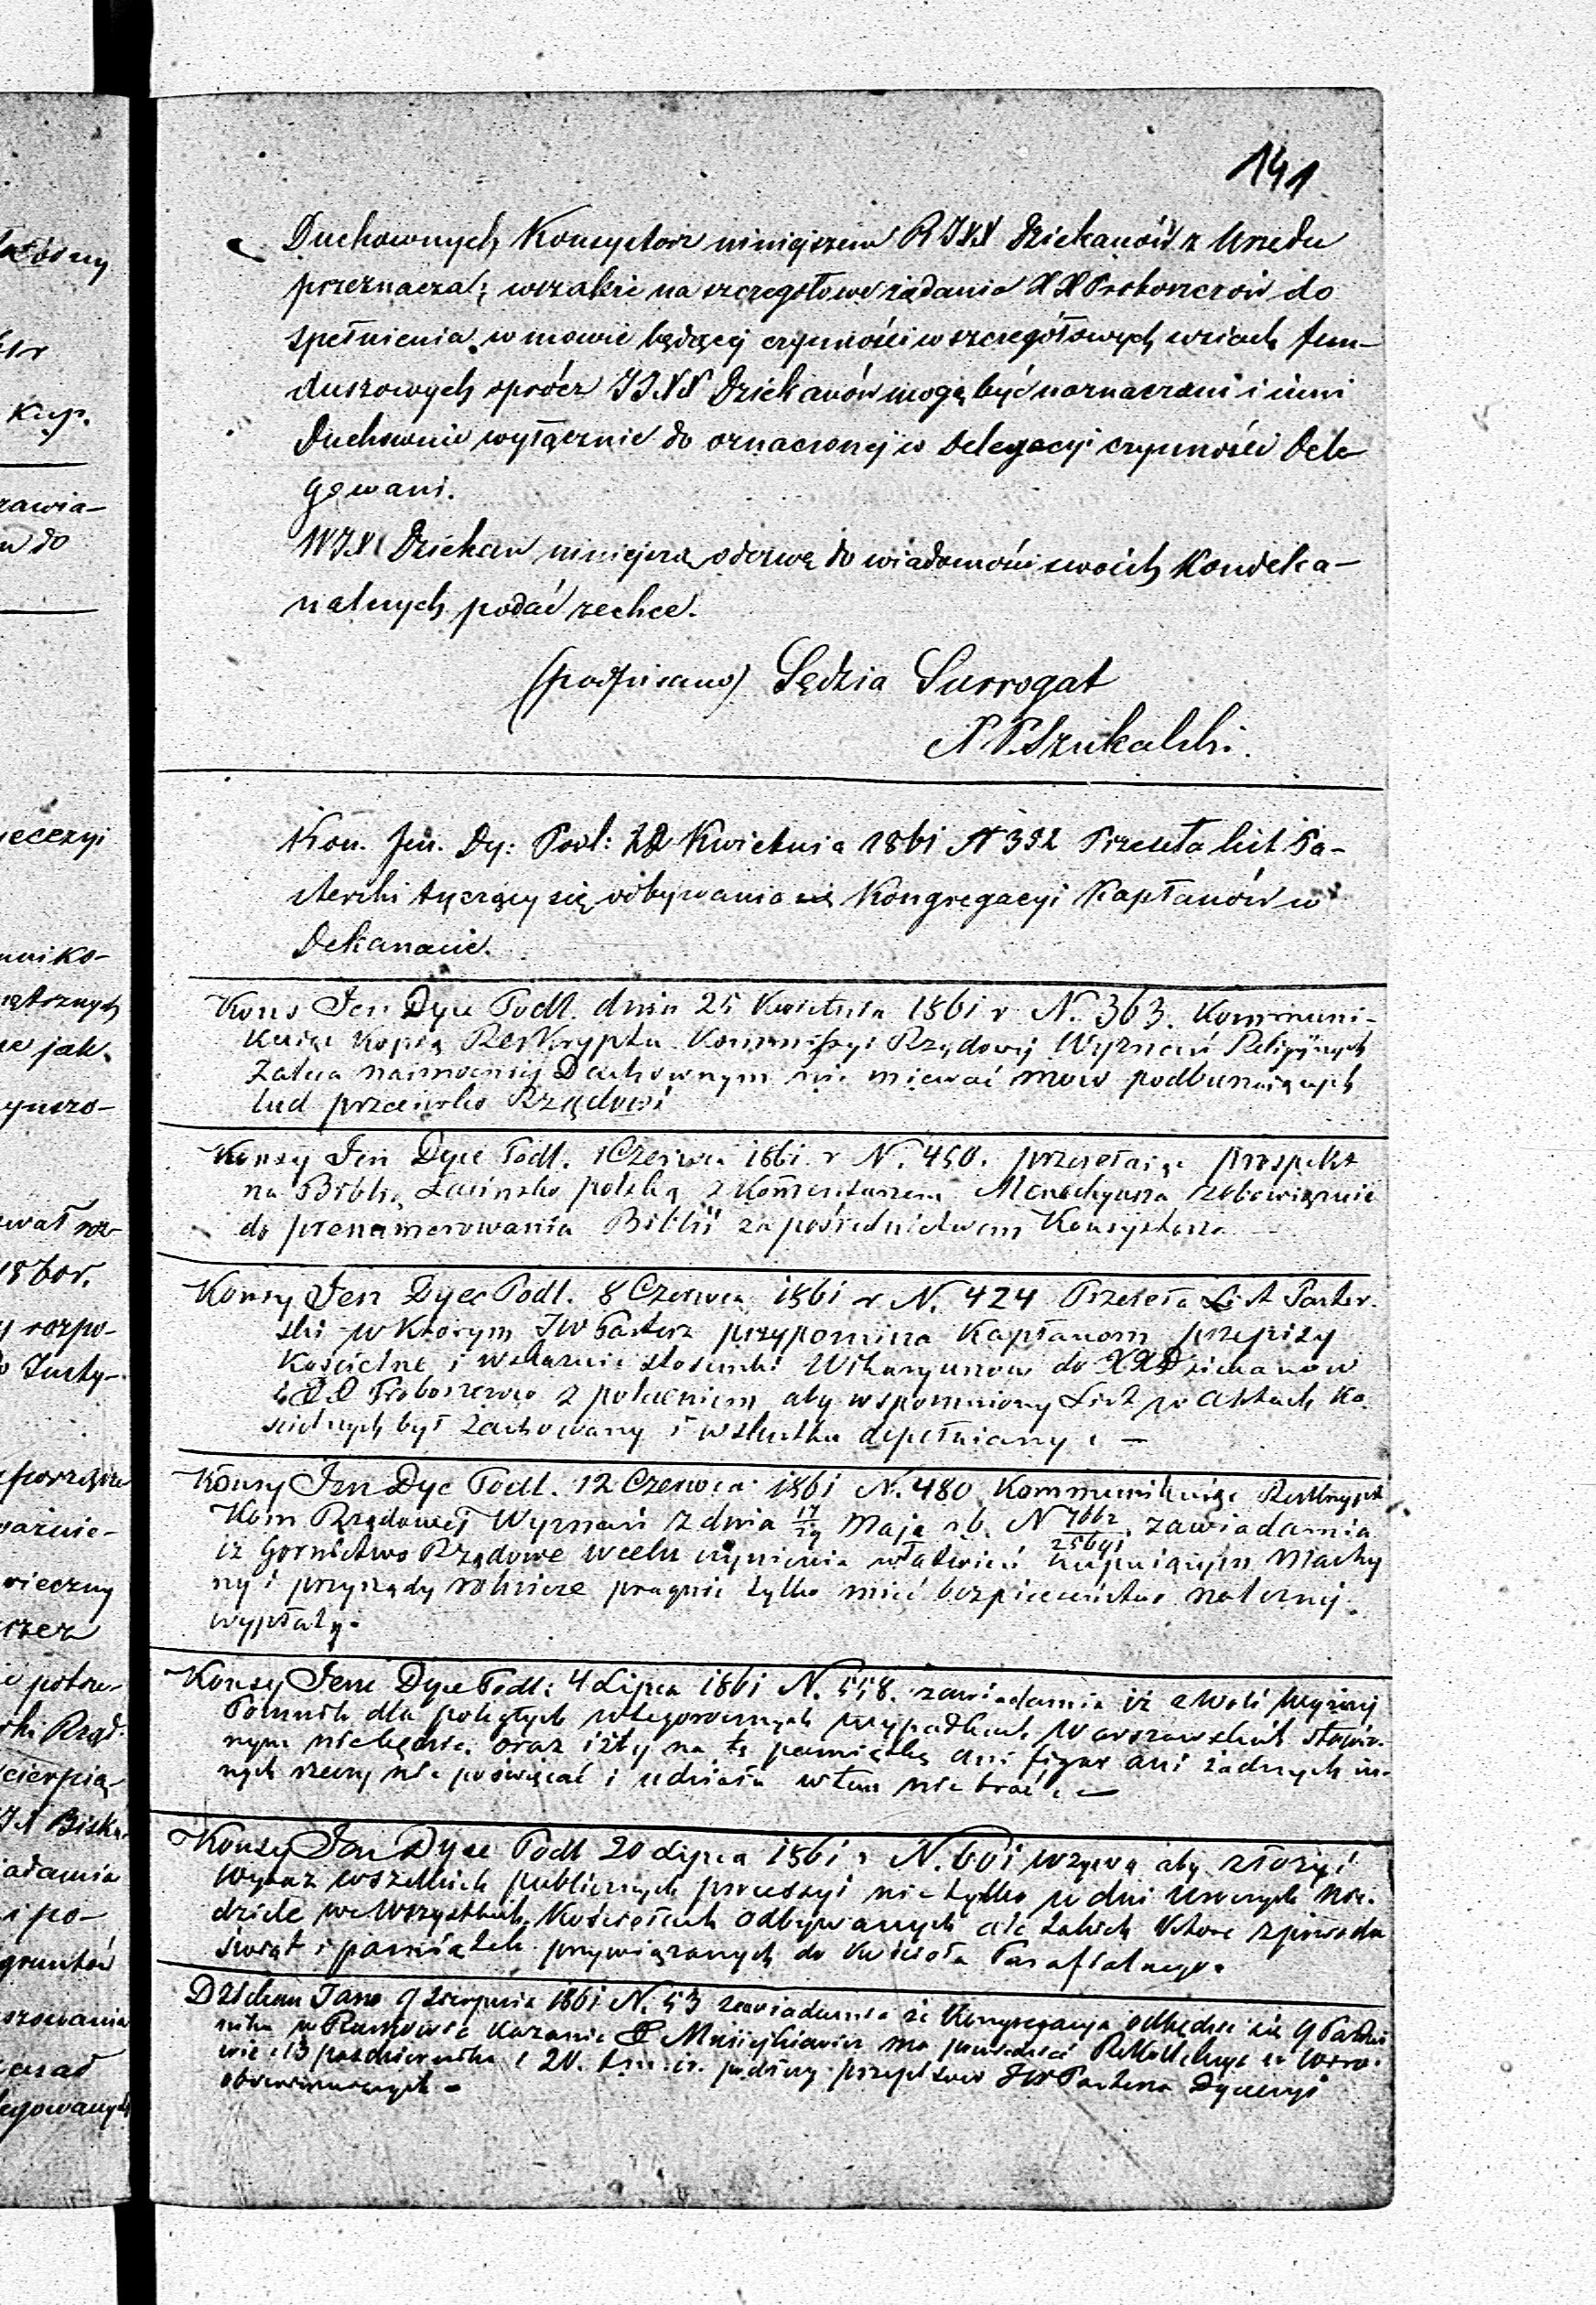 141
Duchownych, Konsystorz niniejszem RJXX Dziekanów z Urzędu
przeznacza; wszakże na szczegółowe żądanie XX Proboszczów do
spełnienia w mowie będącej czynności w szczegółowych wsiach fun-
duszowych oprócz JJXX Dziekanów mogą być naznaczani i inni
Duchowni wyłącznie do oznaczonej w Delegacyi czynności Dele
gowani.
WJX Dziekan niniejszą odezwę do wiadomości swoich Kondeka-
nalnych podać zechce.
(podpisano) Sędzia Surrogat
X P. Szukalski.
Kon. Jen. Dy: Podl: 22 Kwietnia 1861 N 352 Przesyła list Pa-
sterski tyczący się odbywania Kongregacyi Kapłanów w
Dekanacie.
Kons Jen Dyec Podl. dnia 25 Kwietnia 1861 r N. 363. Kommuni-
kując kopię Reskryptu Kommissyi Rządowej Wyznań Religijnych
Zaleca najmocniej Duchownym nie miewać mow podburzających
lud przeciwko Rządowi
Konsy Jen Dyec Podl. 1 Czerwca 1861 r N. 450. przesełając prospekt
na Biblią Łacinsko polską z komentarzem Menochyusza zobowiązuie
do prenumerowania Biblii za pośrednictwem Konsystorza
Konsy Jen Dyec Podl. 8 Czerwca 1861 r N. 424 Przeseła List Paster-
ski w którym JW Pasterz przypomina Kapłanom przepisy
Kościelne i wskazuie stosunki Wikaryuszow do XX Dziekanow
i XX Proboszczow z poleceniem aby wspomniony List w Aktach Ko
scielnych był zachowany i w skutku dopełniany. —
Konsy Jen Dyc Podl. 12 Czerwca 1861 N. 480 Kommunikując Reskrypt
Kom Rządowej Wyznań z dnia 17/29 Maja r b. N 7662/25641. zawiadamia
iż Gornictwo Rządowe w celu czynienia ułatwień kupuiącym Machy
ny i przyrządy rolnicze pragnie tylko mieć bezpieczeństwo należnej
wypłaty.
Konsy Jene Dyec Podl: 4 Lipca 1861 N. 558. zawiadamia iż z woli Wyższej
Pomnik dla poległych w tegorocznych wypadkach Warszawskich stawia-
nym nie będzie. oraz iżby na tę pamiątkę ani figur ani żadnych in-
nych rzeczy nie poswięcać i udziału w tem nie brać. —
Konsy Jen Dyec Podl 20 Lipca 1861 r N. 601 wzywa aby złożyć
Wykaz wszelkich publicznych processyi nie tylko w dni uroczyste Nie-
dziele we wszystkich Kościołach odbywanych ale takich ktore z powodu
świąt i pamiątek przywiązanych do Kościoła Parafialnego.
Dziekan Jano 9 Sierpnia 1861 N. 53 zawiadamia że Kongregacya odbędzie się 9 Paźdź
nika w Kazanie X ma powiedzieć Rekollekcye w
wie 13 pazdziernika i 20. podług przepisow JW Pasterza Dyecezyi